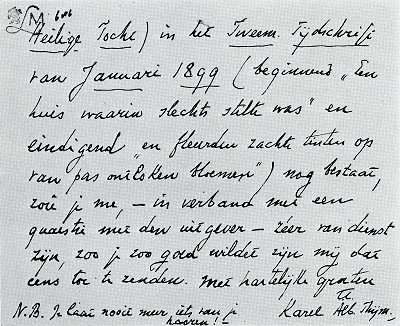 M
Heilige Tocht) in het Tweem. Tijdschrift
van Januari 1899 (beginnend "Een
huis waarin slechts stilte was" en
eindigend "en fleurden zachte tinten op
van pas ontloken bloemen") nog bestaat,
zou je me, – in verband met een
quaestie met den uitgever – zéér van dienst
zijn, zoo je zoo goed wildet zijn mij dat
eens toe te zenden. Met hartelijke groeten
tt
N.B. Ik laat nooit meer iets van je hooren! – Karel Alb. Thijm.